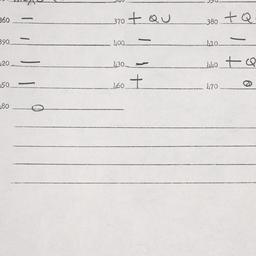 360 — 370 + QU 380 + Q
390 — 400 — 410 —
420 — 430 — 440 + Q
450 — 460 + 470 o
480 o